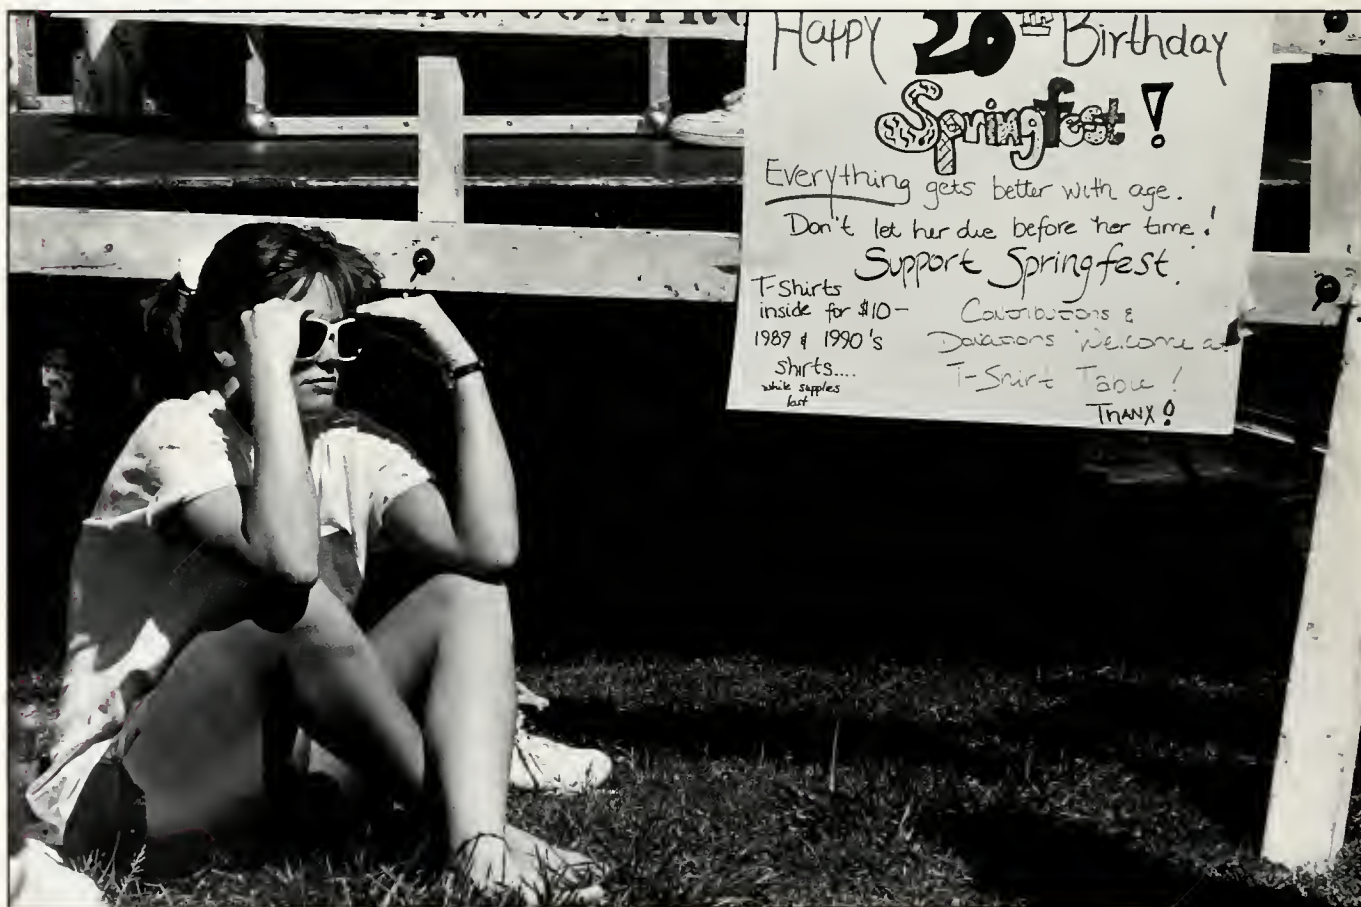 Happy 20th Birthday
Springfest!
Everything gets better with age.
Don't let her die before her time!
Support Springfest.
T-Shirts
inside for $10-
1989 & 1990's
shirts....
while supples
last
Contributions &
Donations Welcome at
T-Shirt Table!
THANX!